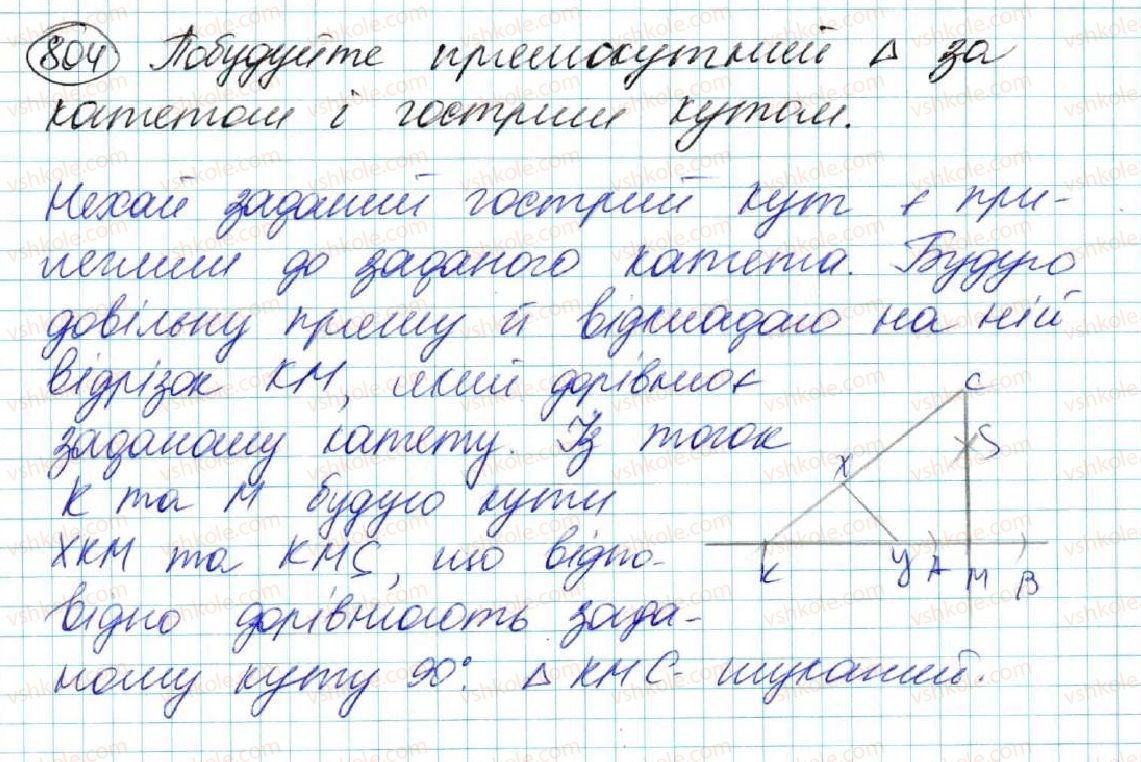 804 Побудуйте прямокутний Δ за
катетом і гострим кутом.
Нехай заданий гострий кут є при-
леглим до заданого катета. Будую
довільну пряму й відкладаю на ній
відрізок КМ, який дорівнює
заданому катету. Із точок
К та М будую кути
ХКМ та КМS, що відпо-
відно дорівнюють зада-
ному куту 90°. Δ КМС - шуканий.
C
S
X
K
У
A
M
B
vshkole.com